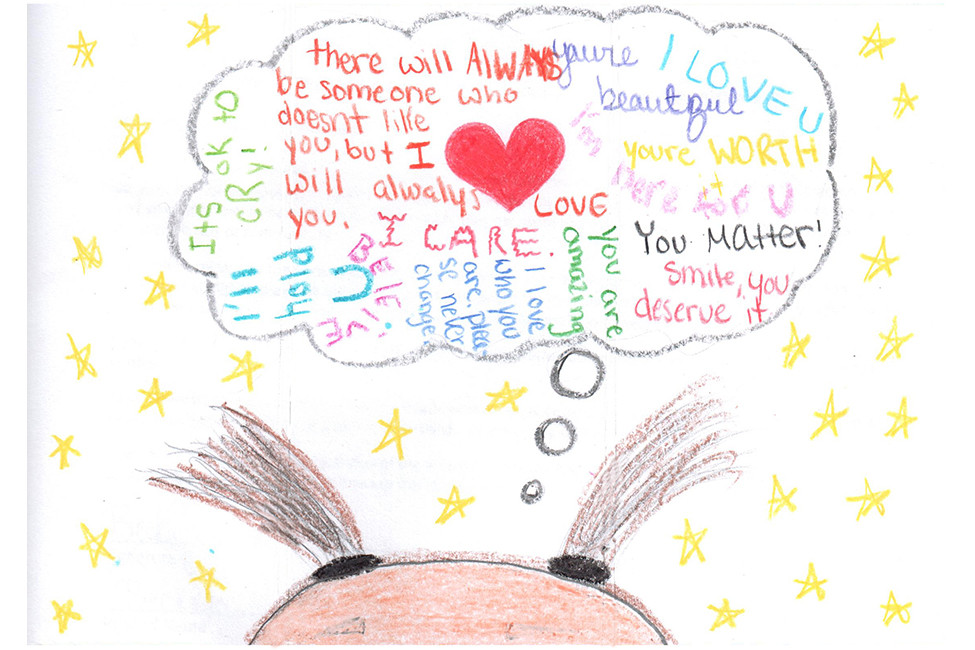 Its ok to
cRy!
there will AlWAYS
be someone who
doesnt like
you, but I
will alwalys LOVE
you.
youre
beautiful
I LOVE U
I'm
Here for U
youre WORTH
it
You Matter!
Smile, you
deserve it.
I CARE.
you are
amazing
I love
who you
are. plea-
se never
change.
I'll
hold
U